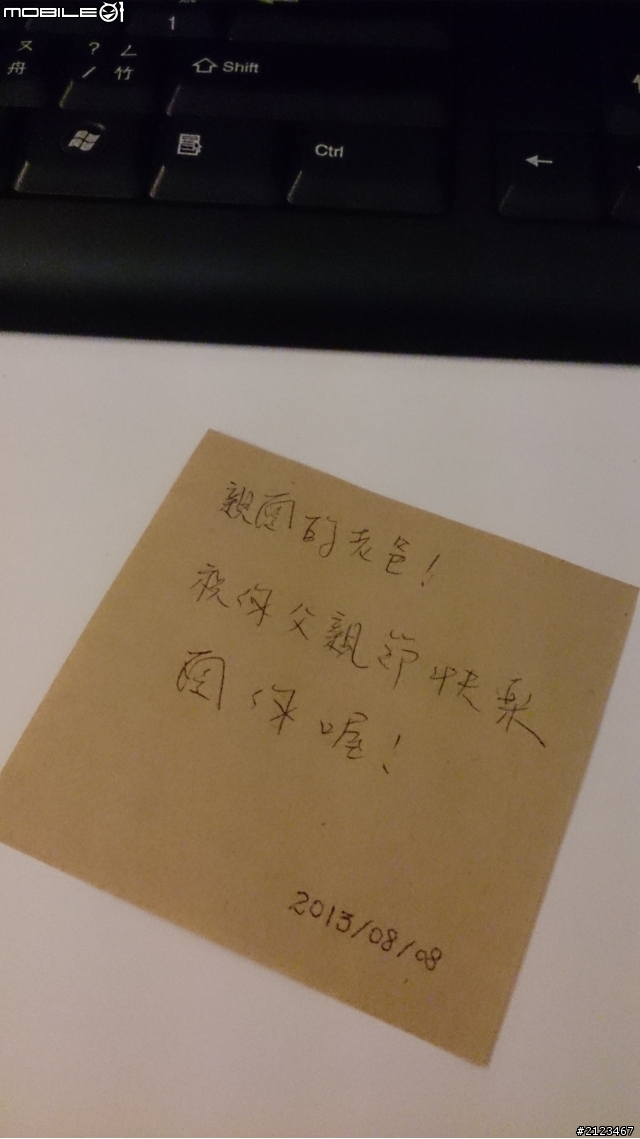 MOBILE01
1
ㄡ ? ㄥ
舟 / 竹
Shift
Ctrl
親愛的老爸!
祝你父親節快樂
愛你喔!
2013/08/08
#2123467